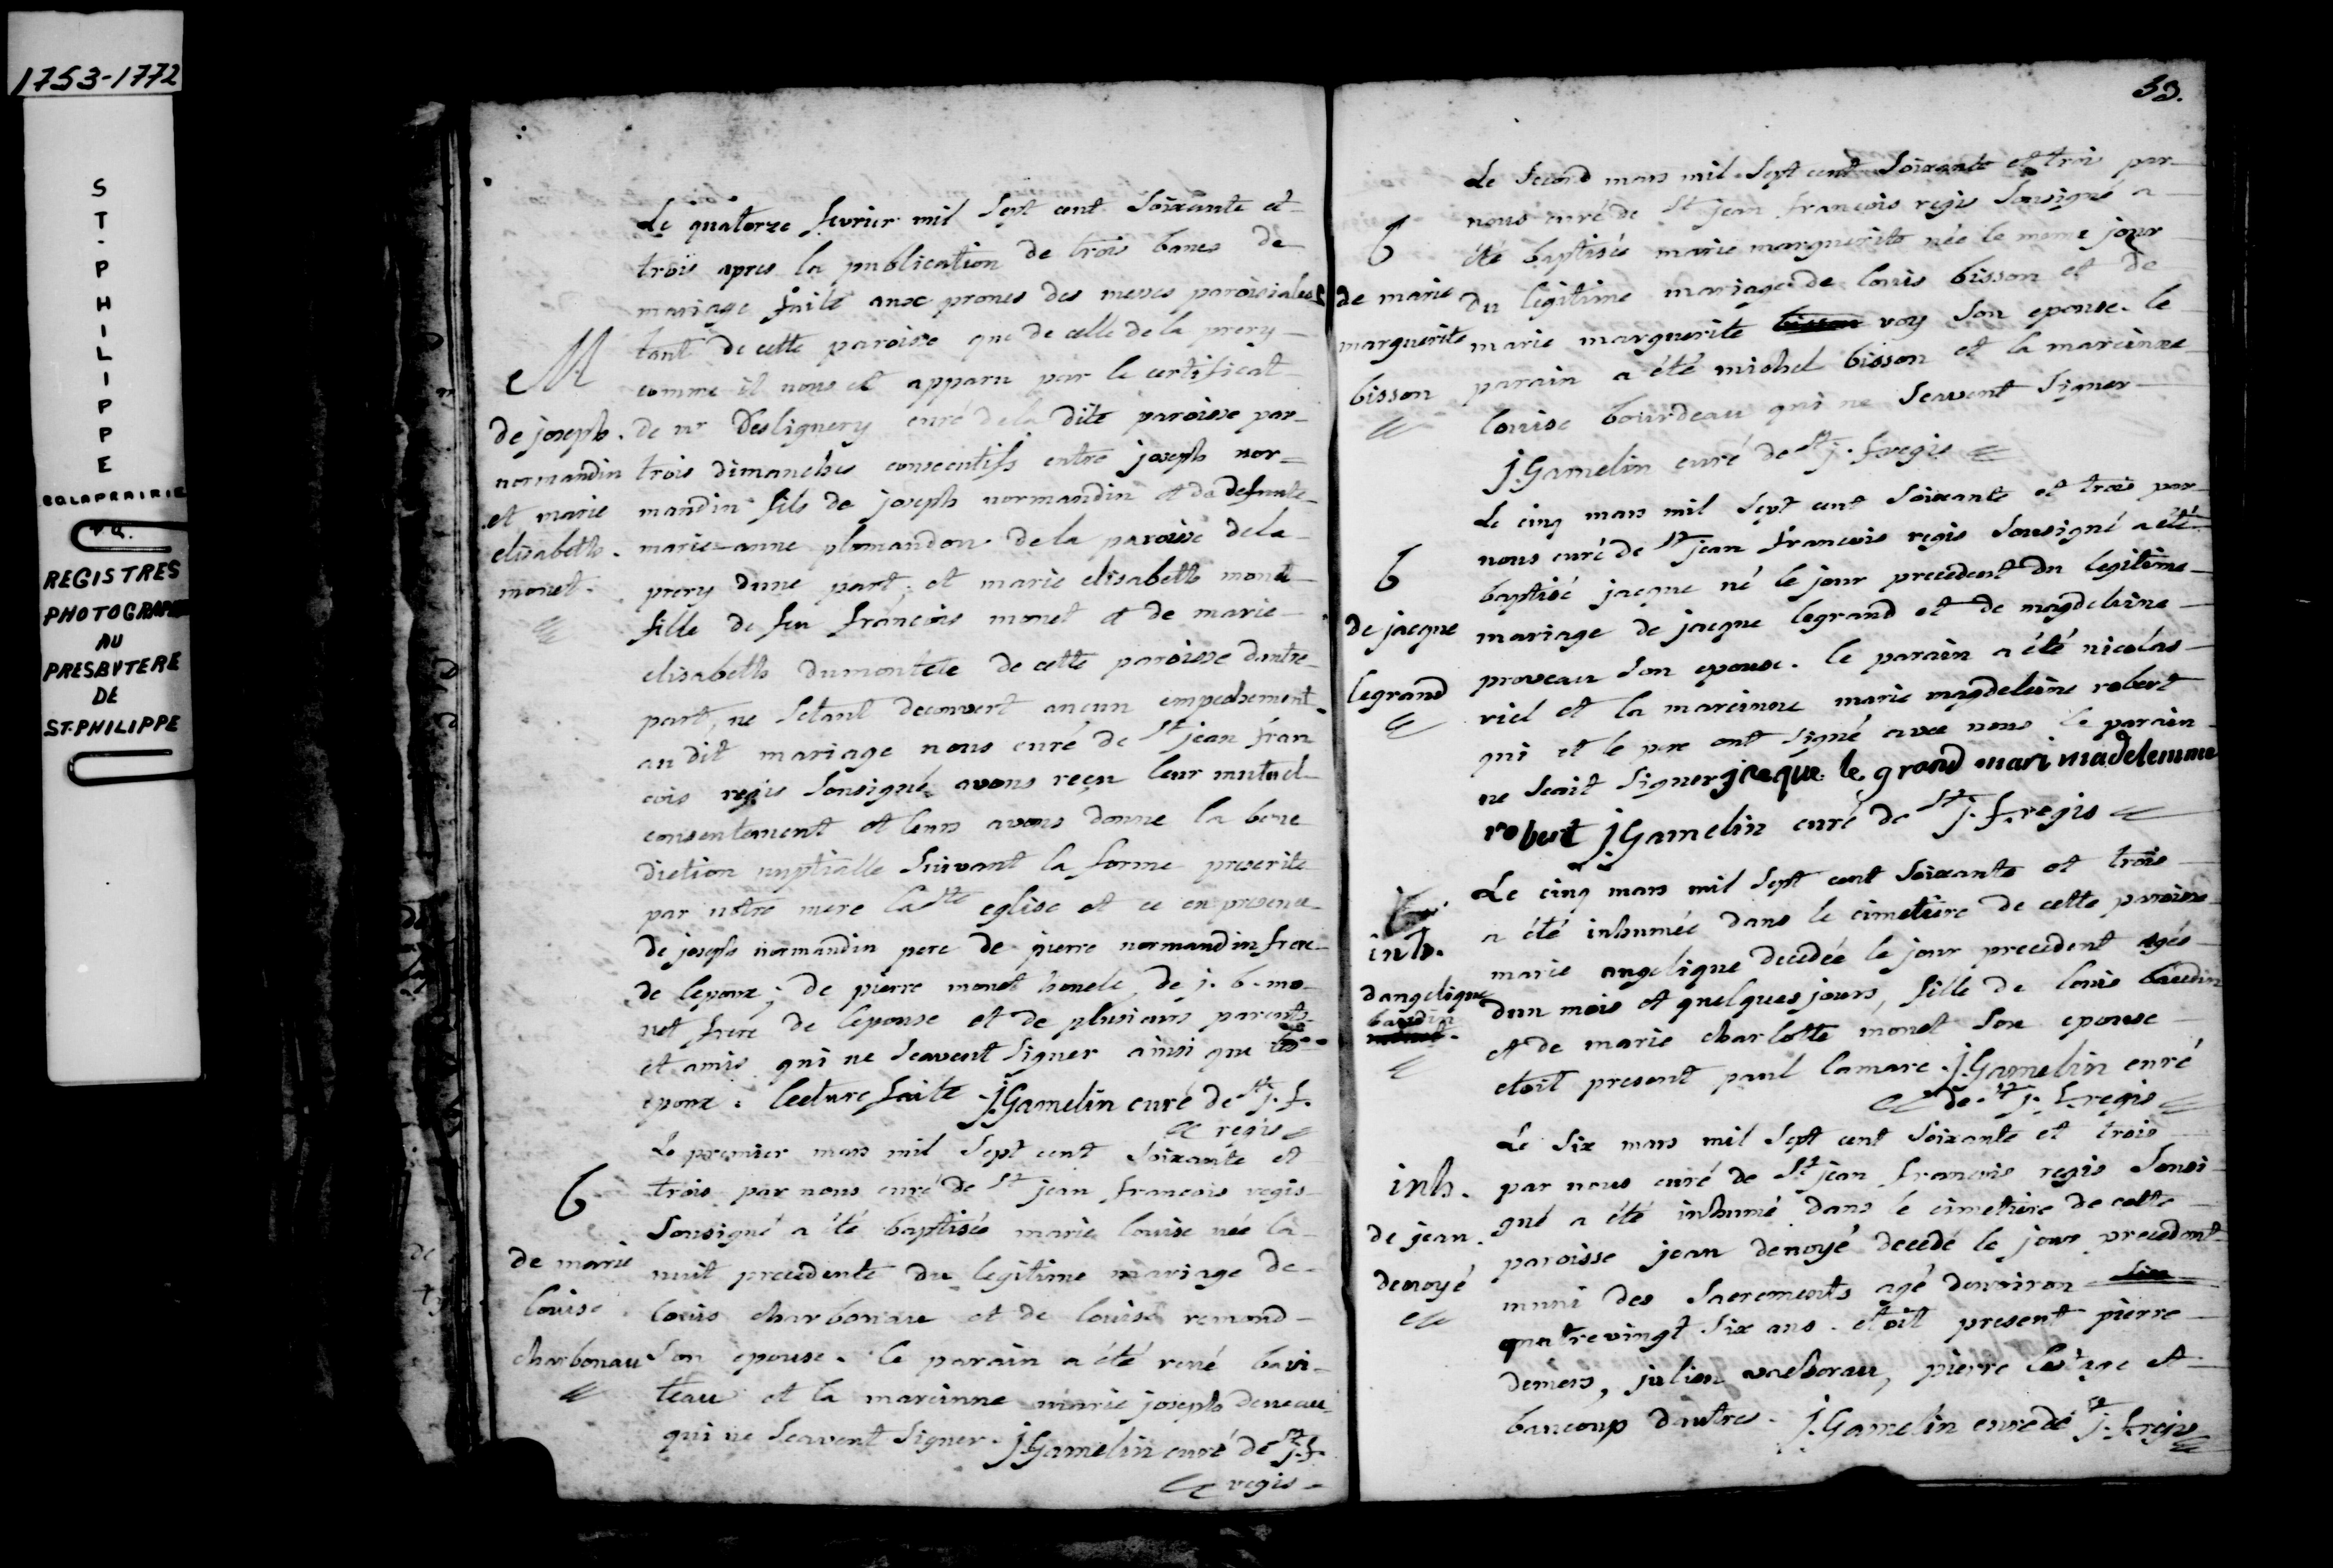 1753-1772
ST. PHILIPPE
CO LAPRAIRIE
P.Q.
REGISTRES
PHOTOGRAPHIES
AU
PRESBYTERE
DE
ST-PHILIPPE
Le quatorze fevrier mil sept cent soixante et
trois apres la publication de trois bancs de
mariage faite aux prones des messes paroisiales
tant de cette paroisse que de celle de la prery
comme il nous est apparu par le certificat
de mr Desligнery curé de la dite paroisse par
trois dimanches consecutifs entre joseph nor=
mandin fils de joseph normandin et de defunte
marie-anne plomandon de la paroisse de la
prery dune part; et marie elisabeth monet
fille de feu francois monet et de marie
elisabeth dumontete de cette paroisse dautre
part, ne setant decouvert aucun empechement
au dit mariage nous curé de St jean fran
cois regis sousigné avons reçu leur mutuel
consentement et leurs avons donne la bene
diction nuptialle suivant la forme prescrite
par notre mere la Ste eglise et ce en presence
de joseph normandin pere de pierre normandin frere
de lepoux; de pierre monet honcle, de j. b. mo-
net frere de lepouse et de plusieurs parents
et amis qui ne scavent signer ainsi que les
epoux. lecture faite j. Gamelin curé de St j. f.
regis
M
de joseph.
normandin
et marie
elisabeth.
monet.
Le premier mars mil sept cent soixante et
trois par nous curé de St jean francois regis
sousigné a été baptisée marie louise née la
nuit precedente du legitime mariage de
louis charbonau et de louise remond
son epouse. le parain a été rené bavi-
teau et la mareinne marie joseph deneau
qui ne scavent signer. j. Gamelin curé de St j. f.
regis
B
de marie
louise
charbonau
33.
Le second mars mil sept cent soixante et trois par
nous curé de St jean francois regis sousigné a
été baptisée marie marguerite née le meme jour
du legitime mariage de louis bisson et de
marie marguerite bisson voy son epouse. le
parain a été michel bisson et la mareinne
louise bourdeau qui ne scavent signer
j. Gamelin curé de St j. f. regis
B
de marie
marguerite
bisson
Le cinq mars mil sept cent soixante et trois par
nous curé de St jean francois regis sousigné a été
baptisé jacque né le jour precedent du legitime
mariage de jacque legrand et de magdeleine
proveau son epouse. le parain a été nicolas
viel et la mareinne marie magdeleine robert
qui et le pere ont signé avec nous le parain
ne scait signer jacque le grand mari madelemme
robert j. Gamelin curé de St j. f. regis
B
de jacque
legrand
Le cinq mars mil sept cent soixante et trois
a été inhumée dans le cimetiere de cette paroisse
marie angelique decedée le jour precedent agée
dun mois et quelques jours, fille de louis baudin
et de marie charlotte monet son epouse
etoit present paul lamare. j. Gamelin curé
de St j. f. regis
inh.
dangelique
baudin
monet.
Le six mars mil sept cent soixante et trois
par nous curé de St jean francois regis sousi-
gné a été inhumé dans le cimetiere de cette
paroisse jean denoyé decedé le jour precedent
muni des sacrements agé denviron six
quatrevingt six ans. etoit present pierre
demers, julien vacherau, pierre lestage et
baucoup dautres. j. Gamelin curé de St j. f. regis
inh.
de jean
denoyé